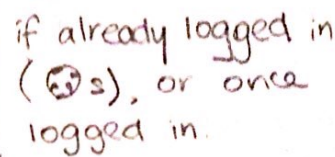 if already logged in
( s), or once
logged in.